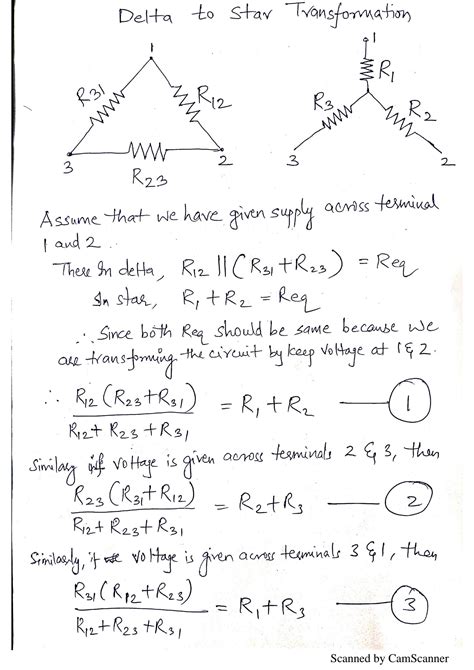 Delta to Star Transformation
1
R31
R12
3
2
R23
1
R1
R3
R2
3
2
Assume that we have given supply across terminal
1 and 2.
Then In delta, R12 || (R31 + R23) = Req
In star, R1 + R2 = Req
∴ Since both Req should be same because we
are transforming the circuit by keep voltage at 1 & 2.
∴ R12 (R23+R31) / R12 + R23 + R31 = R1 + R2 — 1
Similarly if voltage is given across terminals 2 & 3, then
R23 (R31 + R12) / R12 + R23 + R31 = R2 + R3 — 2
Similarly, if voltage is given across terminals 3 & 1, then
R31 (R12 + R23) / R12 + R23 + R31 = R1 + R3 — 3
Scanned by CamScanner